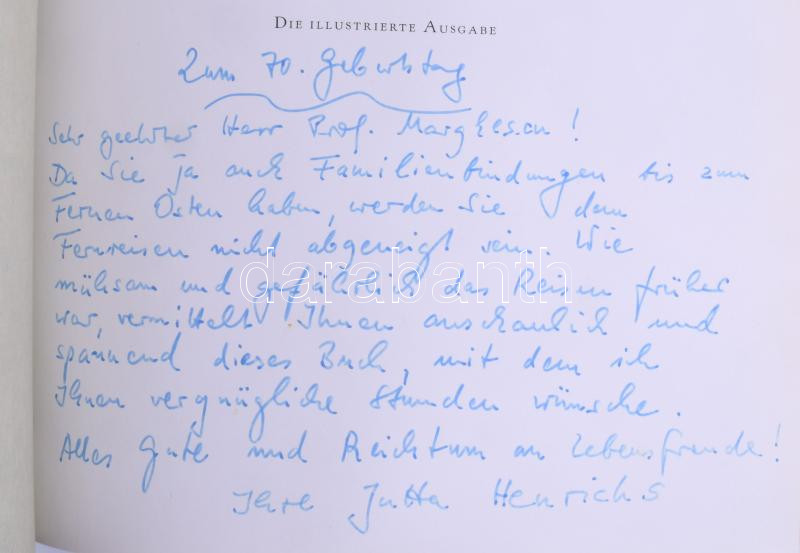 DIE ILLUSTRIERTE AUSGABE
Zum 70. Geburtstag
Sehr geehrter Herr Prof. !
Da Sie ja auch Familienbindungen bis zum
Fernen Osten haben, werden Sie dem
Fernreisen nicht abgeneigt sein. Wie
mühsam und gefährlich das Reisen früher
war, vermittelt Ihnen anschaulich und
spannend dieses Buch, mit dem ich
Ihnen vergnügliche Stunden wünsche.
Alles Gute und Reichtum an Lebensfreude!
Ihre Jutta Henrichs
darabanth